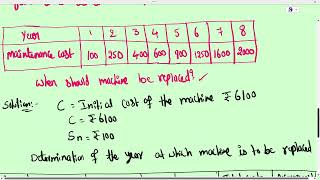 Year 1 2 3 4 5 6 7 8
maintenance cost 100 250 400 600 900 1250 1600 2000
When should machine be replaced?
Solution:- C = Initial cost of the machine ₹6100
C = ₹6100
Sn = ₹100
Determination of the year at which machine is to be replaced